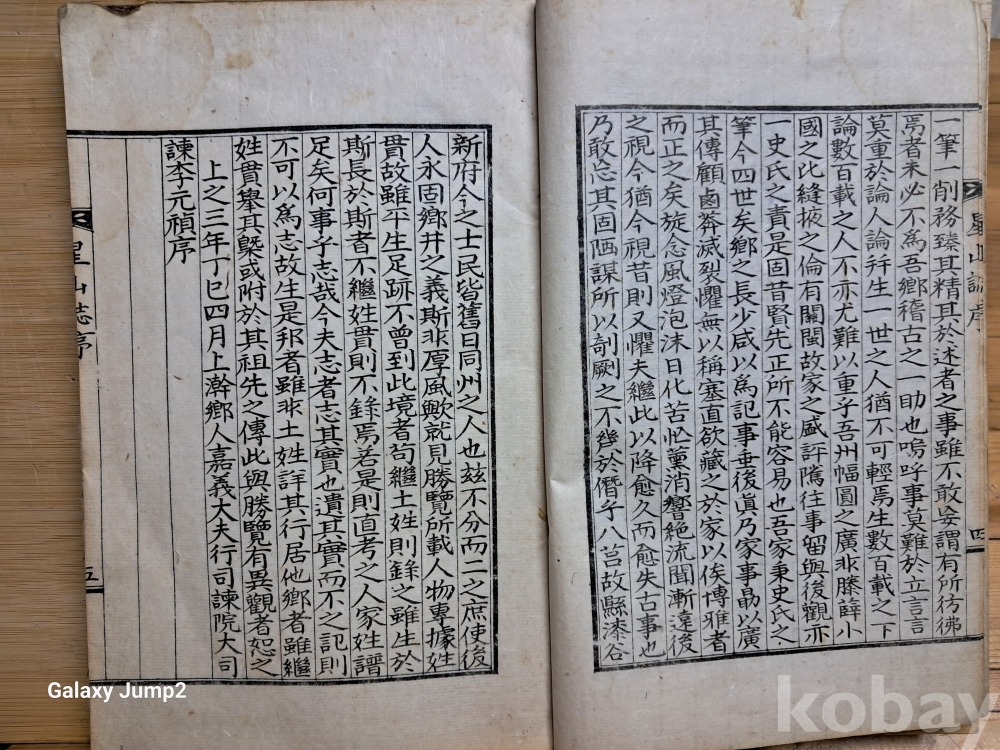 一筆一削務臻其精其於述者之事雖不敢妄謂有所彷彿
焉者未必不爲吾鄉稽古之一助也嗚呼事莫難於立言言
莫重於論人論幷生一世之人猶不可輕焉生數百載之下
論數百載之人不亦尤難以重乎吾州幅圓之廣非滕薛小
國之比縫掖之倫有關閥故家之盛評隲往事留與後觀亦
一史氏之責是固昔賢先正所不能容易也吾家秉史氏之
筆今四世矣鄉之長少咸以爲記事垂後眞乃家事勗以廣
其傳顧鹵莽滅裂懼無以稱塞直欲藏之於家以俟博雅者
而正之矣旋念風燈泡沫日化苦忙薰消響絶流聞漸遠後
之視今猶今視昔則又懼夫繼此以降愈久而愈失古事也
乃敢忘其固陋謀所以剞劂之不幾於僭乎八莒故縣漆谷
星山誌序
四
新府今之士民皆舊日同州之人也玆不分而二之庶使後
人永固鄉井之義斯非厚風歟就見勝覽所載人物專據姓
貫故雖平生足跡不曾到此境者苟繼土姓則錄之雖生於
斯長於斯者不繼姓貫則不錄焉若是則直考之人家姓譜
足矣何事乎志哉今夫志者志其實也遺其實而不之記則
不可以爲志故生是邦者雖非土姓詳其行居他鄉者雖繼
姓貫擧其槩或附於其祖先之傳此與勝覽有異觀者恕之
上之三年丁巳四月上澣鄉人嘉義大夫行司諫院大司
諫李元禎序
星山誌序
五
Galaxy Jump2
kobay